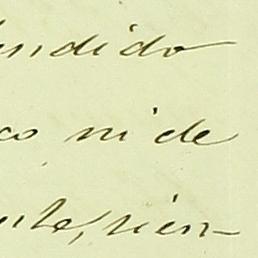 ndido
co, ni de
nte, sien-